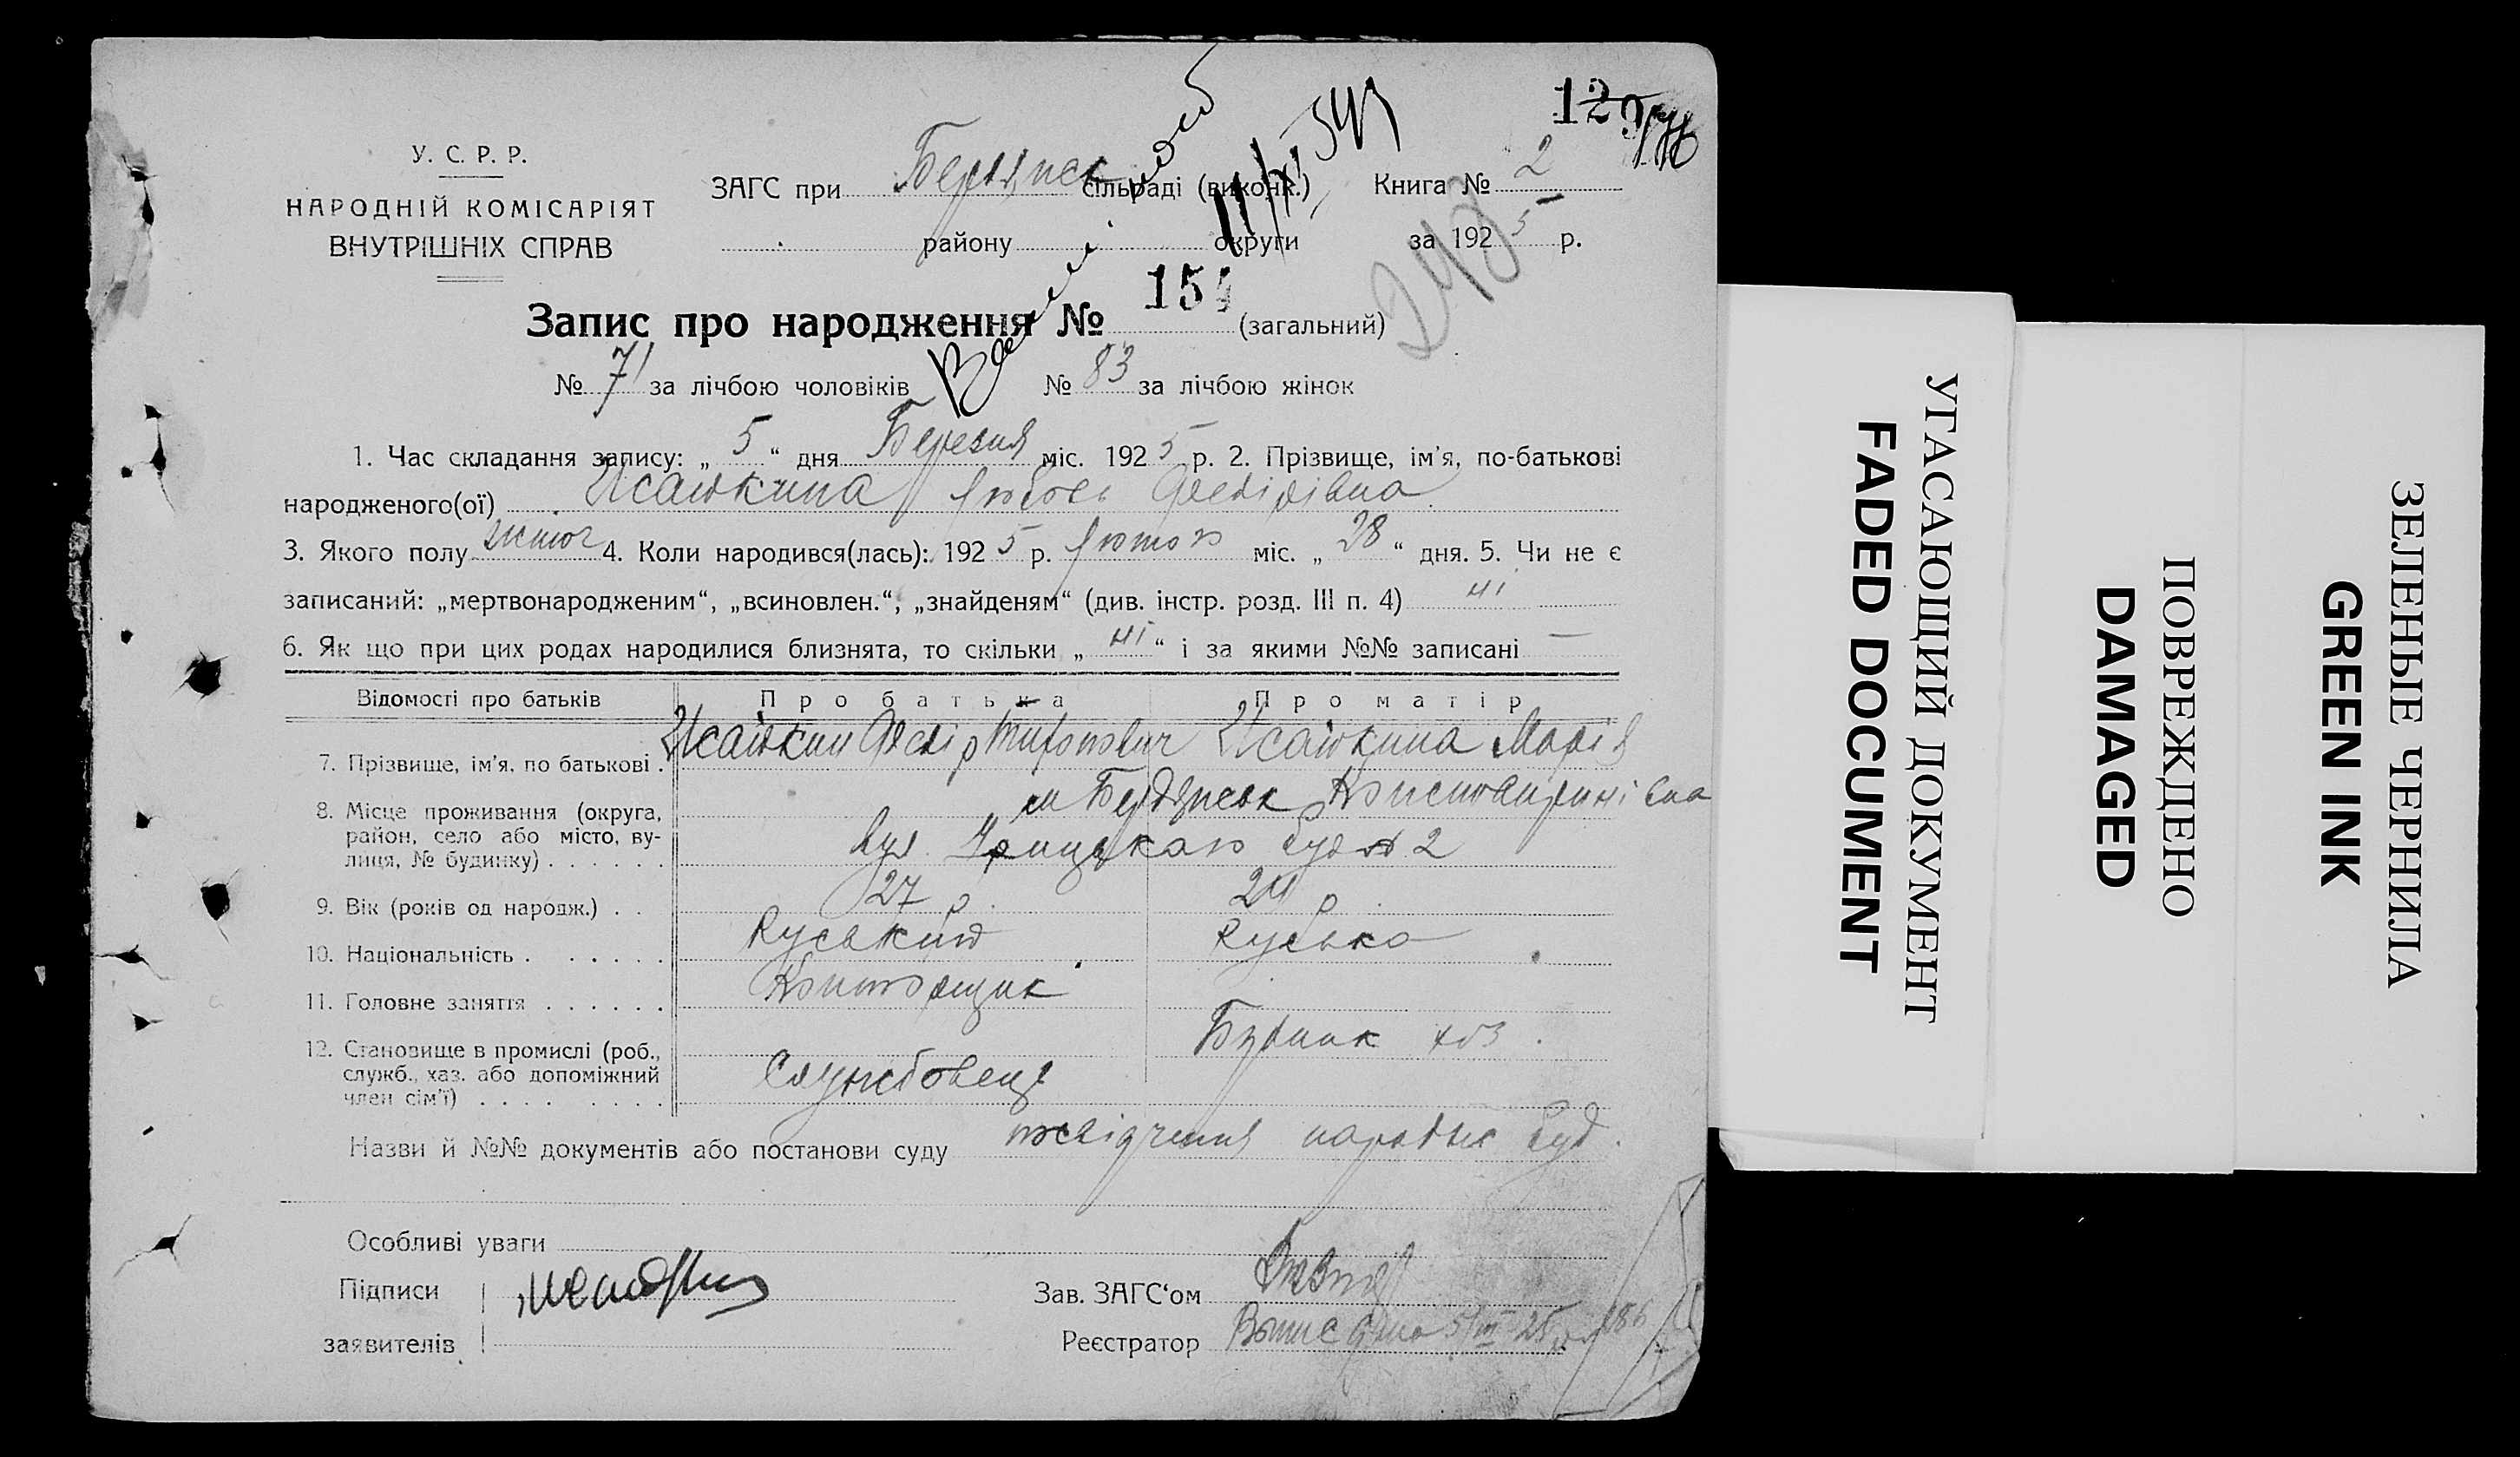 129
У. С. Р. Р.
НАРОДНІЙ КОМІСАРІЯТ
ВНУТРІШНІХ СПРАВ
ЗАГС при Бердянск сільраді (виконк.) Книга № 2
району округи за 1925 р.
248
Запис про народження № 154 (загальний)
№ 71 за лічбою чоловіків № 83 за лічбою жінок
1. Час складання запису: „ 5 “ дня Березня міс. 1925 р. 2. Прізвище, ім'я, по-батькові
народженого(ої) Исайкина Любовь Федірівна
3. Якого полу жіноч 4. Коли народився(лась): 1925 р. Лютого міс. „ 28 “ дня. 5. Чи не є
записаний: „мертвонародженим“, „всиновлен.“, „знайденям“ (див. інстр. розд. III п. 4) ні
6. Як що при цих родах народилися близнята, то скільки „ ні “ і за якими №№ записані —
Відомості про батьків Про батька Про матір
7. Прізвище, ім'я, по батькові . Исайкин Федір Исайкина Марія
8. Місце проживання (округа, м Бердянськ Константинівна
район, село або місто, ву-
лиця, № будинку) . . . . . . вул. Урицького буд № 2
9. Вік (років од народж.) . . 27 р. 24 р.
10. Національність . . . . . . Руський Руська
11. Головне заняття . . . . . . Конторщик
12. Становище в промислі (роб., Будинк хоз.
служб., хаз. або допоміжний Службовець
член сім'ї) . . . . . . . .
Назви й №№ документів або постанови суду посвідчення народн суд.
Особливі уваги
Підписи Зав. ЗАГС‘ом
заявителів Реєстратор 5/III 25
УГАСАЮЩИЙ ДОКУМЕНТ
FADED DOCUMENT
ПОВРЕЖДЕНО
DAMAGED
ЗЕЛЕНЫЕ ЧЕРНИЛА
GREEN INK